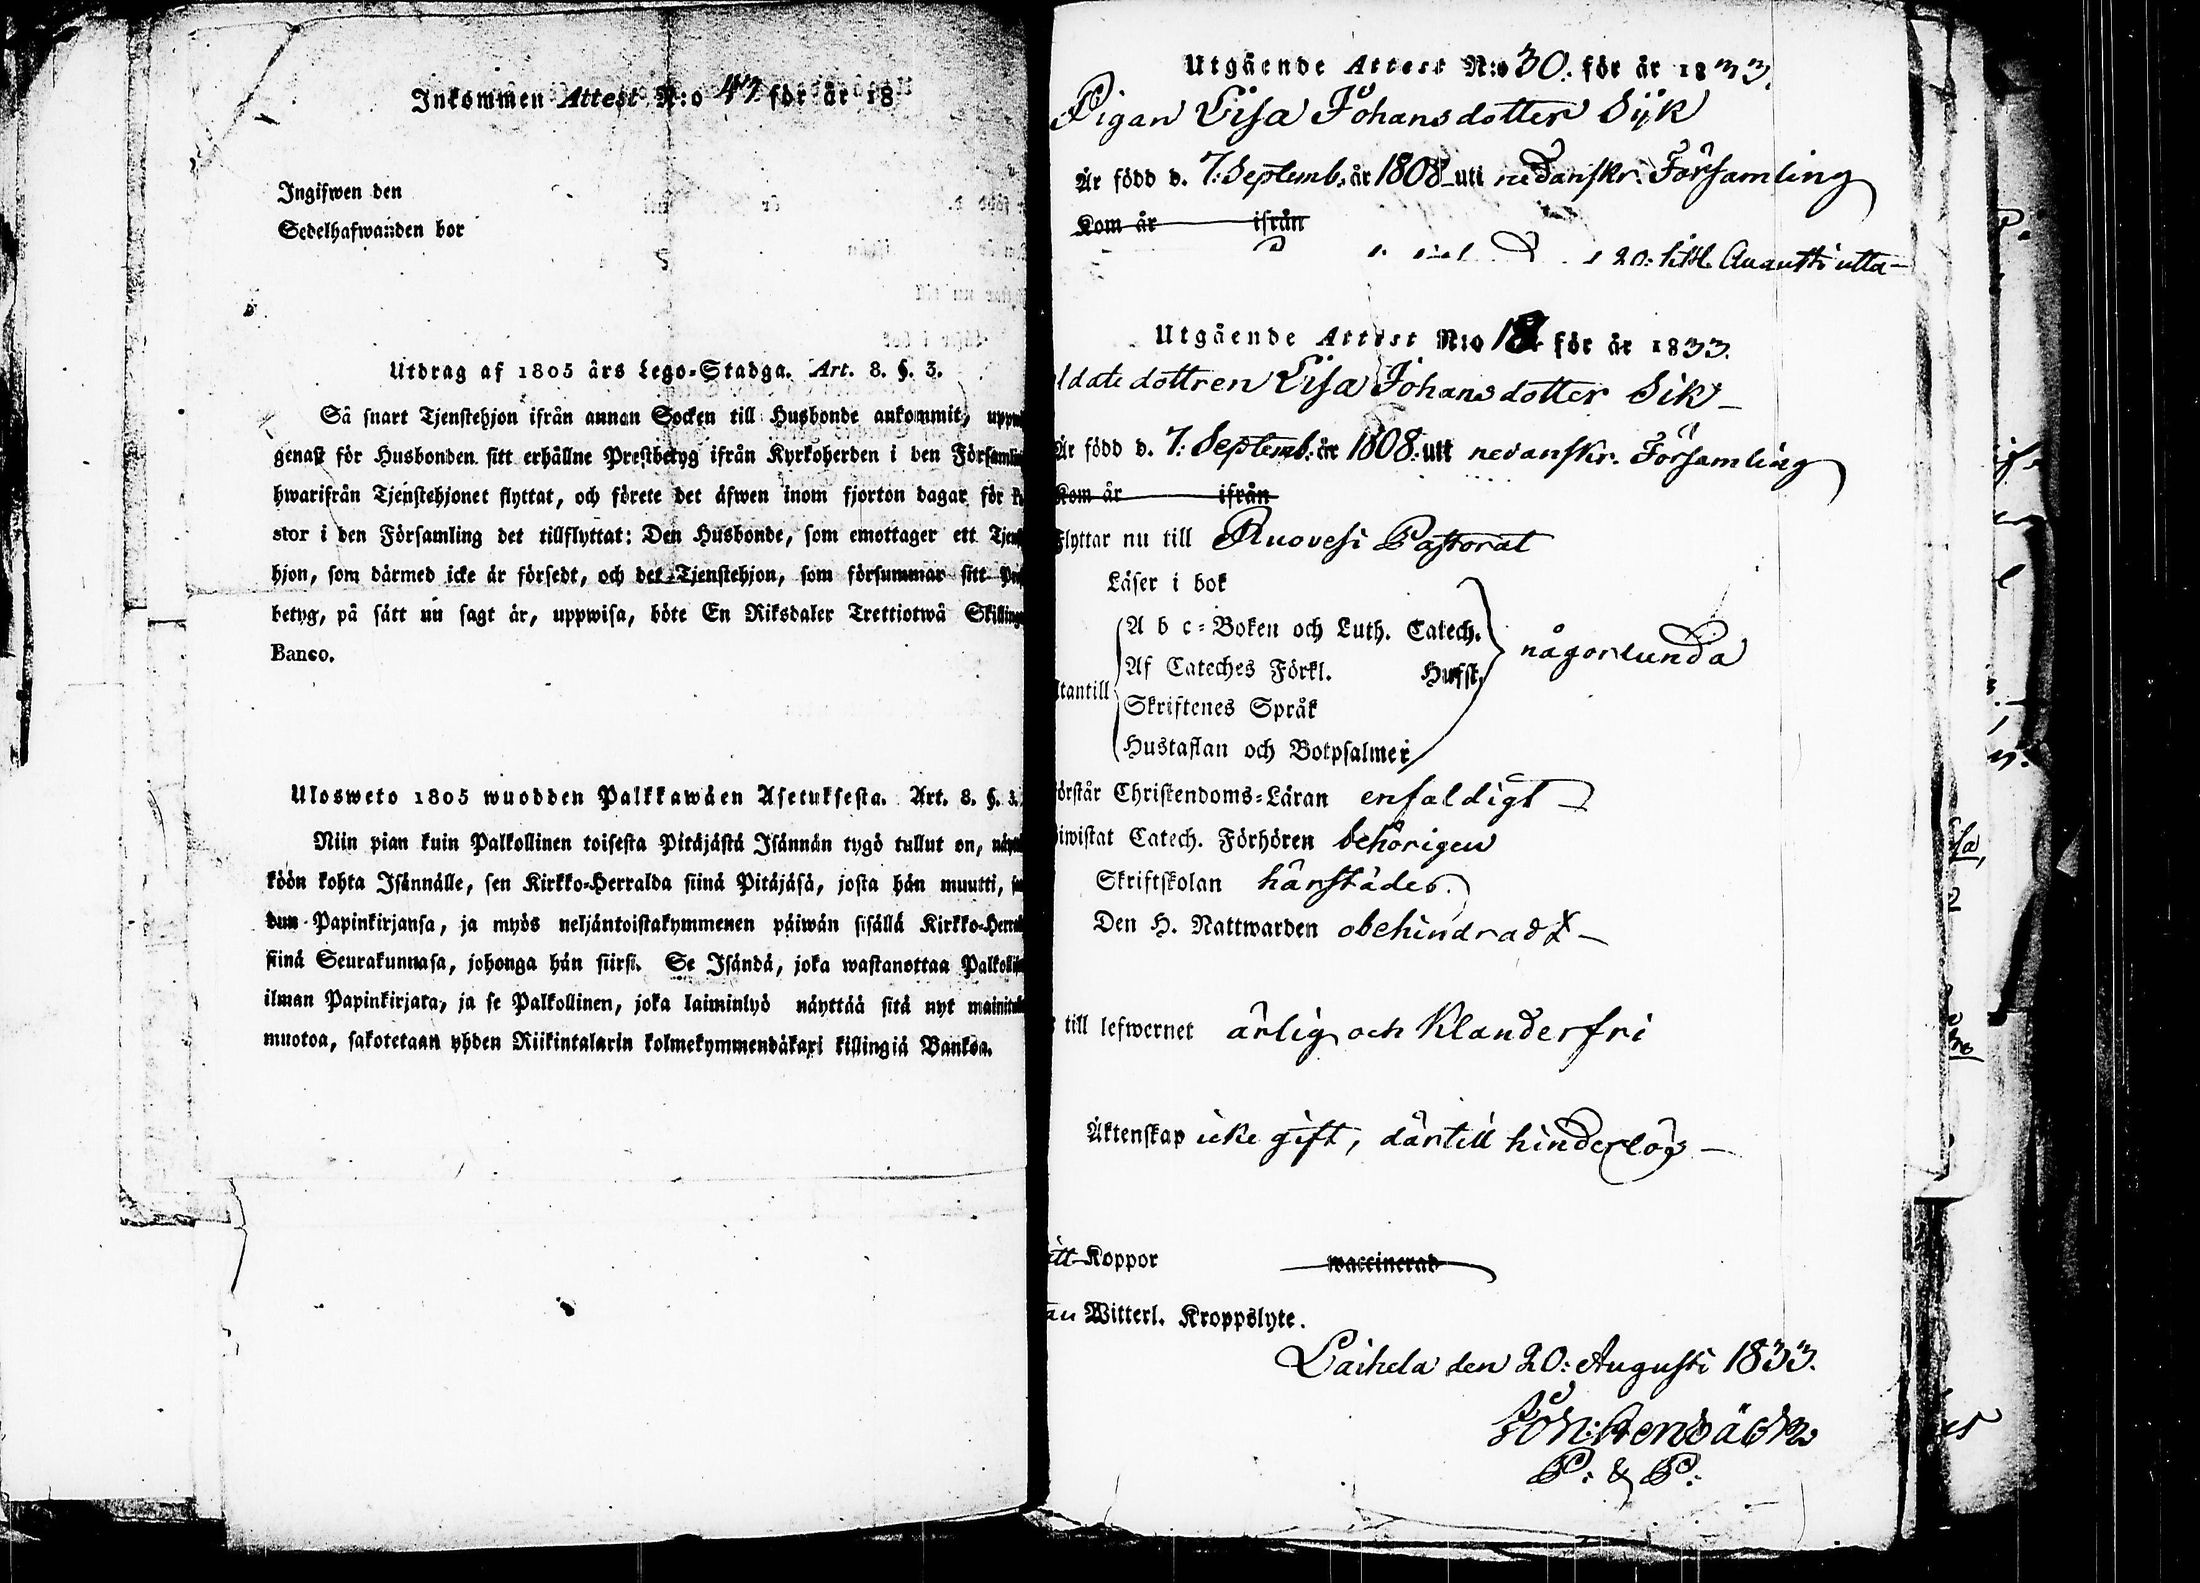 Inkommen Attest N:o 47. för år 18
Ingifwen den
Sedelhafwanden bor
Utdrag af 1805 års Lego-Stadga. Art. 8. §. 3.
Så snart Tjenstehjon ifrån annan Socken till Husbonde ankommit, uppwi
genast för Husbonden sitt erhållne Prestbetyg ifrån Kyrkoherden i den Församlin
hwarifrån Tjenstehjonet flyttat, och förete det äfwen inom fjorton dagar för
stor i den Församling det tillflyttat: Den Husbonde, som emottager ett Tjenst
hjon, som därmed icke är försedt, och det Tjenstehjon, som försummar sitt Pre
betyg, på sätt nu sagt är, uppwisa, böte En Riksdaler Trettiotwå Skilling
Banco.
Ulosweto 1805 wuodden Palkkawäen Asetuksesta. Art. 8. §. 3.
Niin pian kuin Palkollinen toisesta Pitäjästä Isännän tygö tullut on, näyt
köön kohta Isännälle, sen Kirkko-Herralda siinä Pitäjäsä, josta hän muutti, sa
dun Papinkirjansa, ja myös neljäntoistakymmenen päiwän sisällä Kirkko-Herra
siinä Seurakunnasa, johonga hän siirsi. Se Isändä, joka wastanottaa Palkolli
ilman Papinkirjata, ja se Palkollinen, joka laiminlyö näyttää sitä nyt mainitu
muotoa, sakotetaan yhden Riikintalarin kolmekymmendäkaxi killingiä Bankoa.
Utgående Attest N:o 30. för år 1833.
Pigan Lisa Johansdotter Sijk
Är född d. 7: Septemb. år 1808 uti nedanskr. Församling
Kom år ifrån
20: sistl. Augusti utta-
Utgående Attest N:o 18 för år 1833.
ldatedottren Lisa Johansdotter Sik
Är född d. 7: Septemb: år 1808: uti nedanskr. Församling
Kom år ifrån
Flyttar nu till Ruovesi Pastorat
Läser i bok
A b c-Boken och Luth. Catech.
Af Cateches Förkl. Husst. någorlunda
tantill
Skriftenes Språk
Hustaflan och Botpsalmer
örstår Christendoms-Läran enfaldigt
iwistat Catech. Förhören behörigen
Skriftskolan härstädes.
Den H. Nattwarden obehindradt
till lefwernet ärlig och klanderfri
Äktenskap icke gift, därtill hinderlös
tt Koppor waccinerad
an Witterl. Kroppslyte.
Laihela den 20: Augusti 1833.
P: & P: